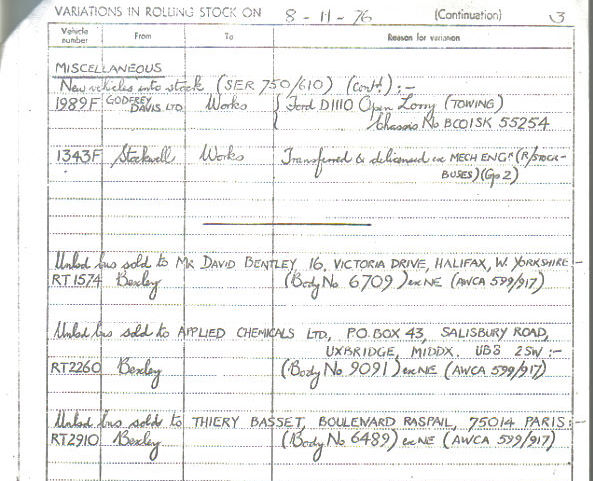 VARIATIONS IN ROLLING STOCK ON 8-11-76 (Continuation) 3
Vehicle number From To Reason for variation
MISCELLANEOUS
New vehicles into stock (SER 750/610) (contd) :-
1989F GODFREY DAVIS LTD Works { Ford D1110 Open Lorry (TOWING)
Chassis No BC01SK 55254
1343F Stockwell Works Transferred & delicensed ex MECH ENGR (R/STOCK-
BUSES) (Gp 2)
Unlsd bus sold to MR DAVID BENTLEY, 16, VICTORIA DRIVE, HALIFAX, W. YORKSHIRE :-
RT1574 Bexley (Body No 6709) ex NE (AWCA 599/917)
Unlsd bus sold to APPLIED CHEMICALS LTD, P.O. BOX 43, SALISBURY ROAD,
UXBRIDGE, MIDDX. UB8 2SW :-
RT2260 Bexley (Body No 9091) ex NE (AWCA 599/917)
Unlsd bus sold to THIERY BASSET, BOULEVARD RASPAIL, 75014 PARIS :-
RT2910 Bexley (Body No 6489) ex NE (AWCA 599/917)